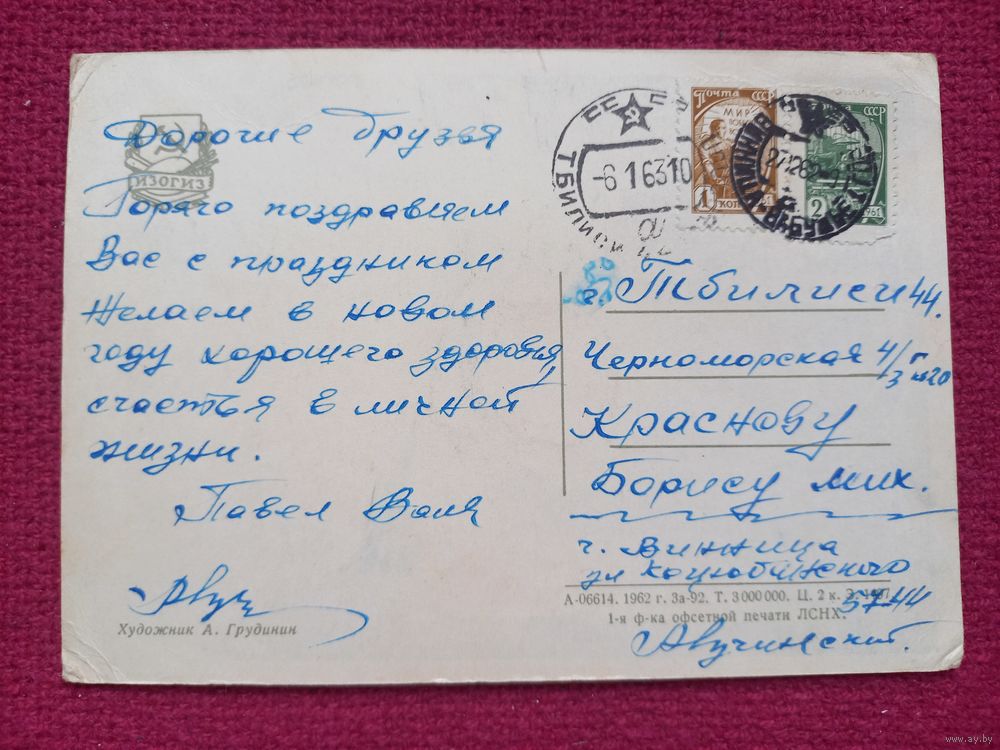 Дорогие друзья
ИЗОГИЗ
Горячо поздравляем
Вас с праздником
Желаем в новом
году хорошего здоровья,
счастья в личной
жизни.
Павел Валя
Художник А. Грудинин
ТБИЛИСИ
-6 1 63 10
ПОЧТА СССР
МИР
1
КОП
1961
ПОЧТА СССР
2
1961
г. Тбилиси 44.
Черноморская 4/3
Краснову
Борису Мих.
г. Винница
ул Коцюбинского
57-44
А-06614. 1962 г. За-92. Т. 3 000 000. Ц. 2 к. З.
1-я ф-ка офсетной печати ЛСНХ.
Авучинский.
www.ay.by